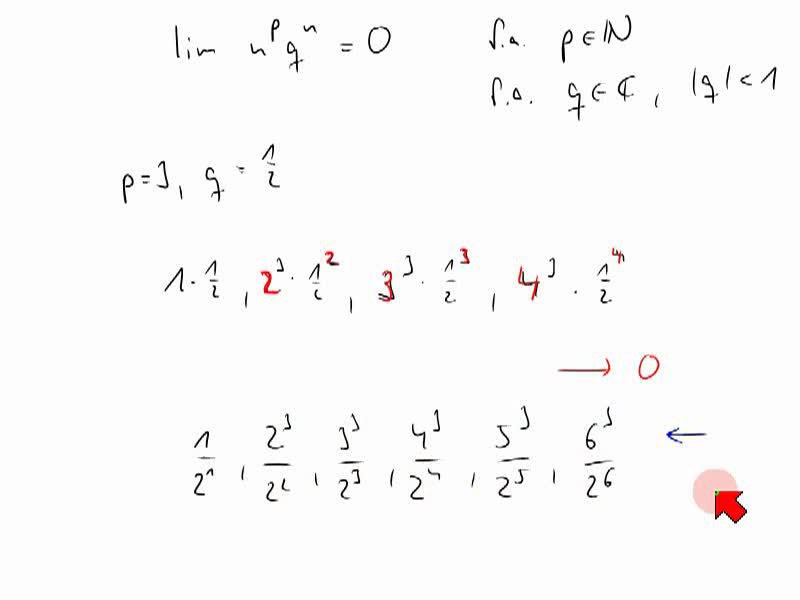 lim n^p q^n = 0 f.a. p ∈ ℕ
f.a. q ∈ ℂ, |q| < 1
p = 3, q = 1/2
1 · 1/2, 2^3 · 1/2^2, 3^3 · 1/2^3, 4^3 · 1/2^4
→ 0
1/2^1, 2^3/2^2, 3^3/2^3, 4^3/2^4, 5^3/2^5, 6^3/2^6 ←